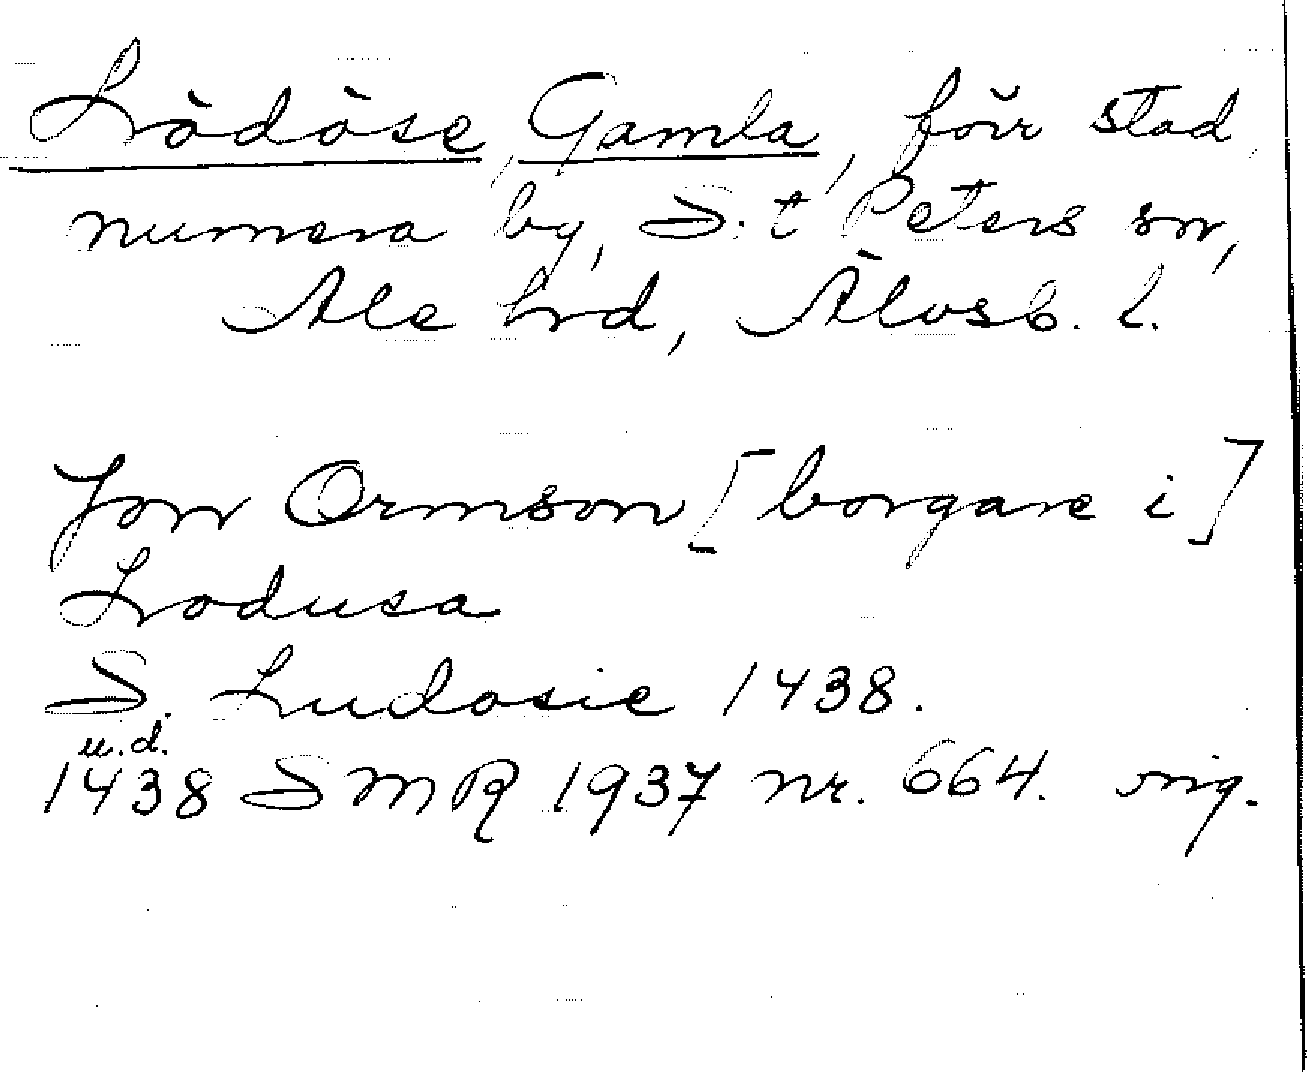 Lödöse, Gamla, förr stad
numera by, S:t Peters sn,
Ale hrd, Älvsb. l.
Jon Ormson [borgare i]
Lodusa
S. Ludosie 1438.
u.d.
1438 SMR 1937 nr. 664. orig.